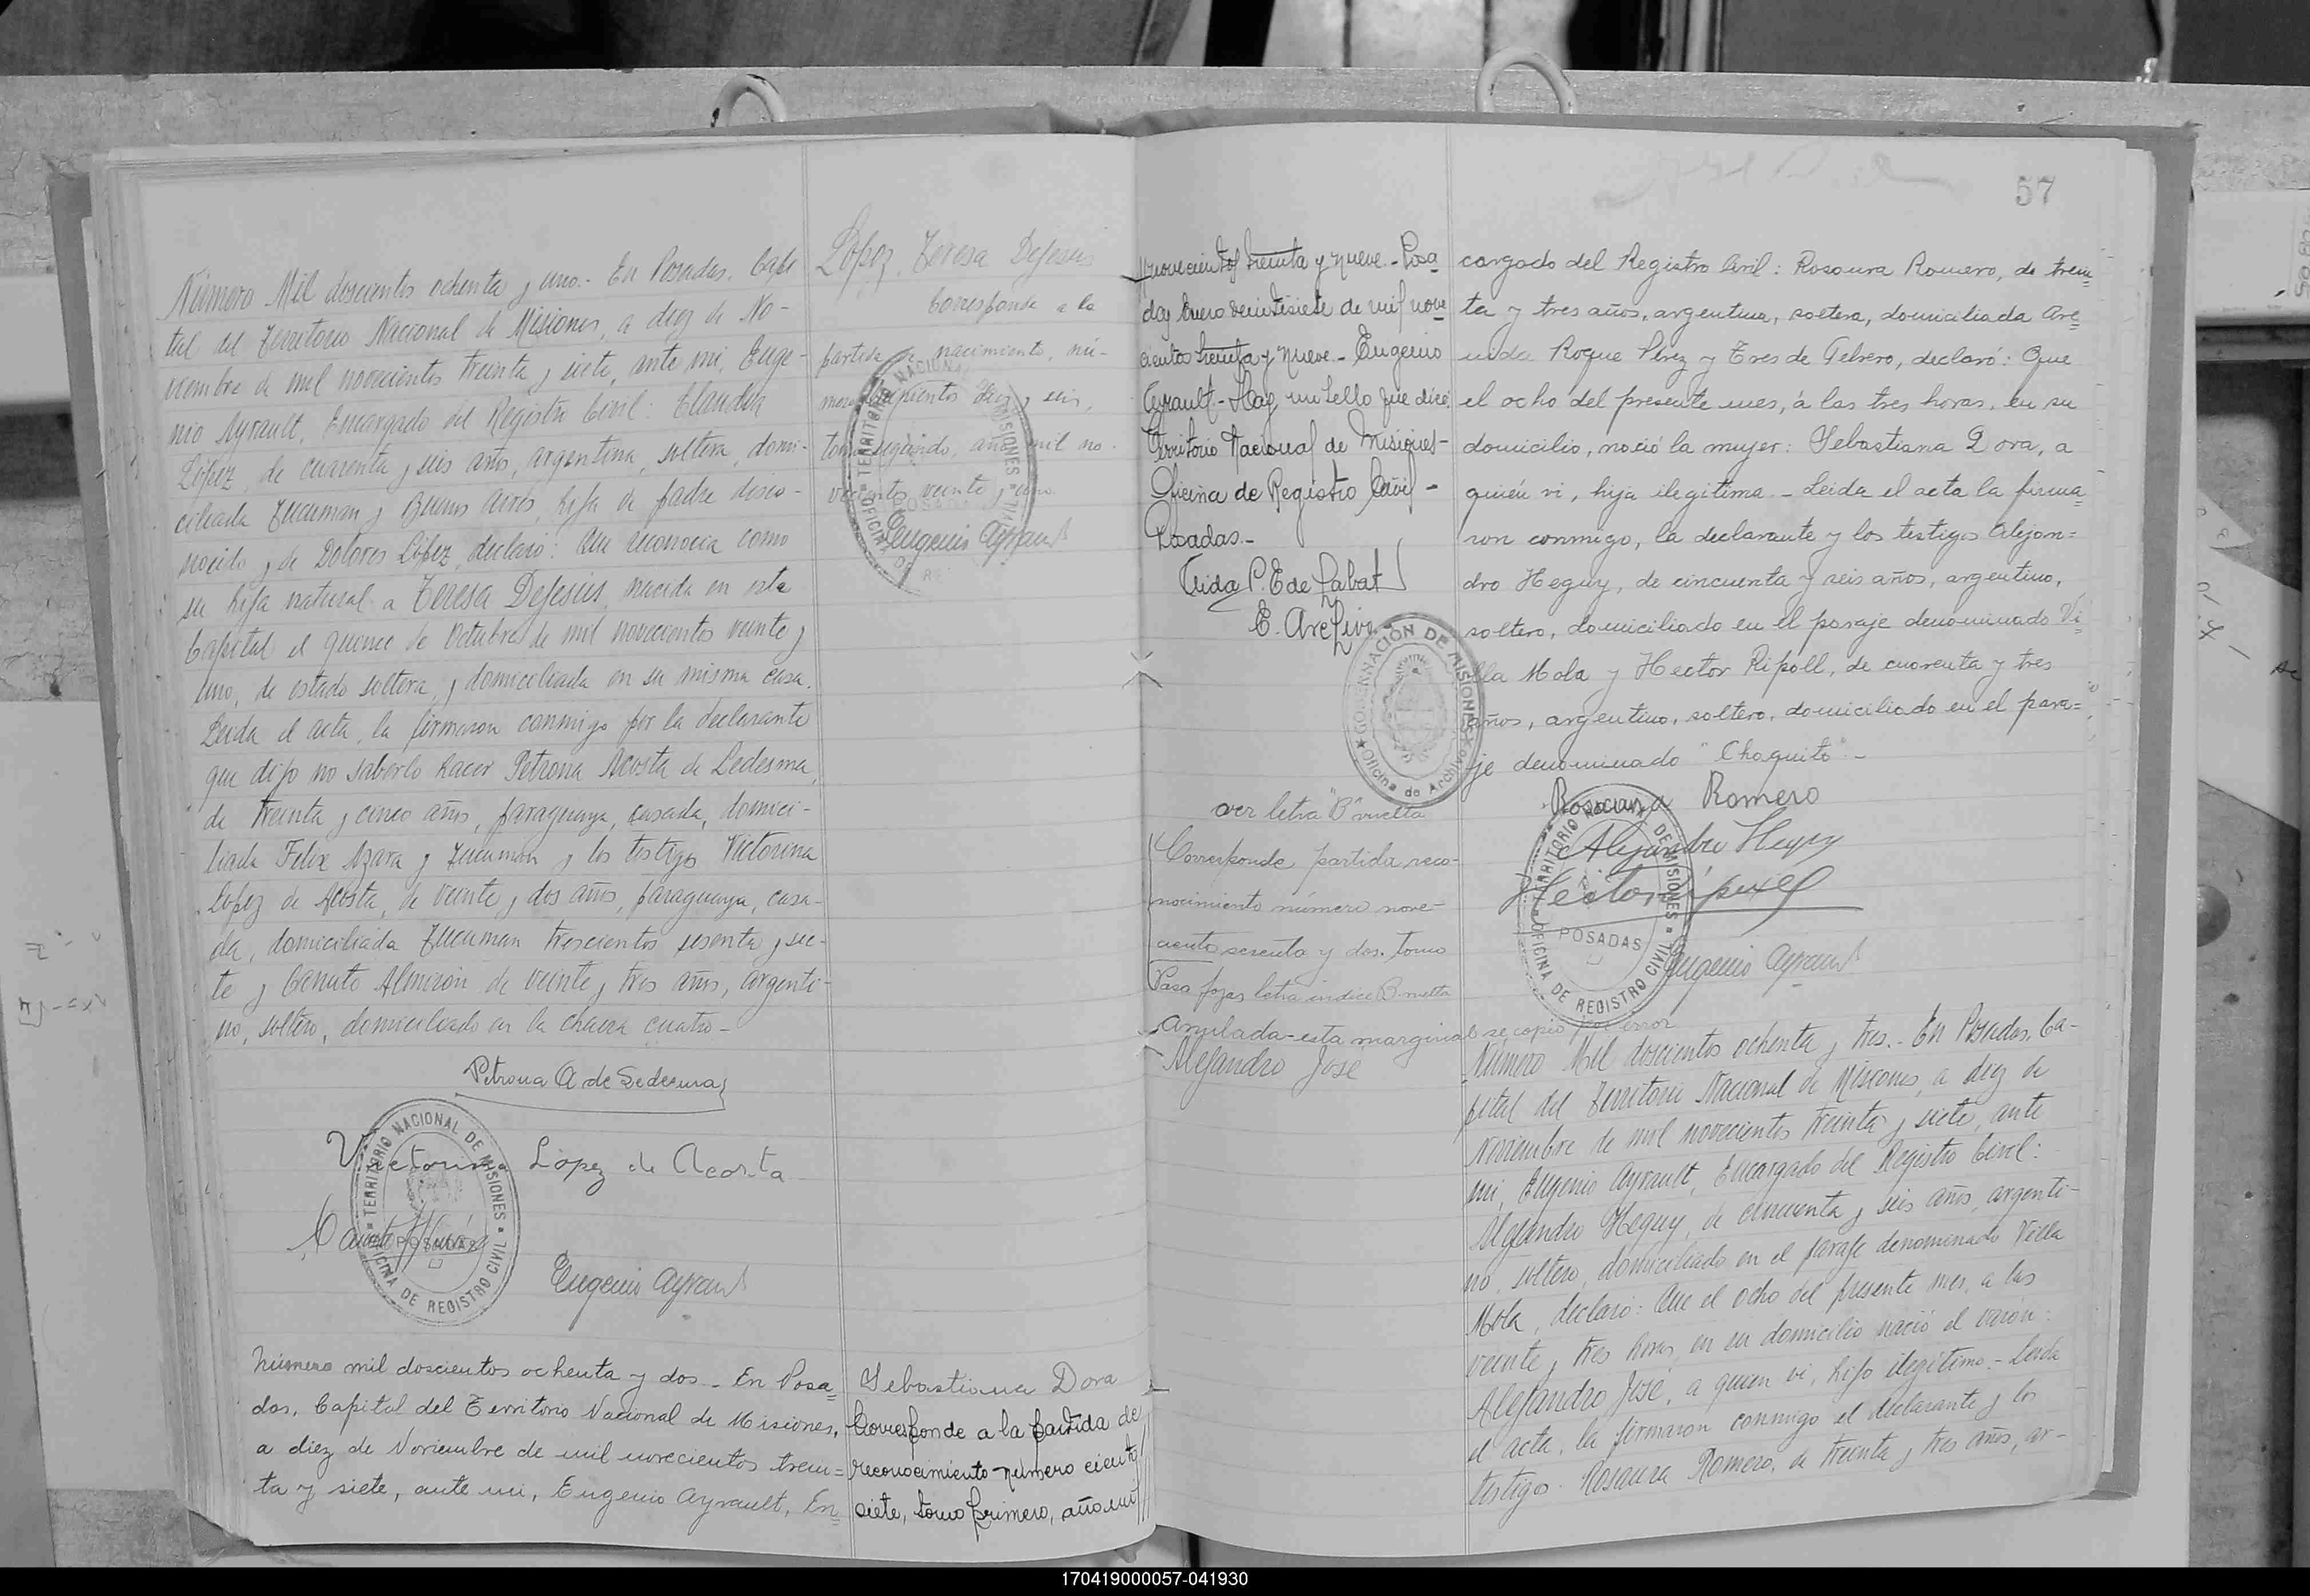 Número Mil doscientos ochenta y uno.- En Posadas, Capi
tal del Territorio Nacional de Misiones, a diez de No-
viembre de mil novecientos treinta y siete, ante mi, Euge-
nio Ayrault, Encargado del Registro Civil: Claudia
López, de cuarenta y seis años, argentina, soltera, domi-
ciliada Tucuman y Buenos Aires, hija de padre desco-
nocido y de Dolores López, declaró: Que reconocia como
su hija natural a Teresa DeJesús, nacida en esta
Capital el quince de Octubre de mil novecientos veinte y
uno, de estado soltera, y domiciliada en su misma casa.
Leida el acta, la firmaron conmigo por la declarante
que dijo no saberlo hacer Petrona Acosta de Ledesma,
de treinta y cinco años, paraguaya, casada, domici-
liada Felix Azara y Tucumán y los testigos Victorina
López de Acosta, de veinte y dos años, paraguaya, casa-
da, domiciliada Tucuman trescientos sesenta y sie-
te y Canuto Almirón de veinte y tres años, argenti-
no, soltero, domiciliado en la chacra cuatro-
Petrona A de Ledesma
Victorina López de Acosta
TERRITORIO NACIONAL DE MISIONES
POSADAS
OFICINA DE REGISTRO CIVIL
Eugenio Ayrault
López, Teresa DeJesús
Corresponde a la
partida de nacimiento, nú-
mero diez y seis,
tomo segundo, año mil no-
vecientos veinte y uno
TERRITORIO NACIONAL DE MISIONES
POSADAS
OFICINA DE REGISTRO CIVIL
Eugenio Ayrault
Número mil doscientos ochenta y dos - En Posa=
das, Capital del Territorio Nacional de Misiones,
a diez de Noviembre de mil novecientos trein=
ta y siete, ante mi, Eugenio Ayrault, En=
Sebastiana Dora
Corresponde a la partida de
reconocimiento número ciento
siete, tomo primero, año mil
novecientos treinta y nueve.- Posa
das Enero veintisiete de mil nove
cientos treinta y nueve - Eugenio
Ayrault - Hay un sello que dice:
Territorio Nacional de Misiones-
Oficina de Registro Civil -
Posadas.-
P. E de Labat
E. Archivo
GOBERNACIÓN DE MISIONES
Oficina de Archivo
ver letra "B" vuelta
Corresponde partida reco-
nocimiento número nove-
ciento sesenta y dos. tomo
Paso fojas letra indice B. vuelta
Anulada-esta marginal se copio por error
Alejandro José
57
cargado del Registro Civil: Rosaura Romero, de trein=
ta y tres años, argentina, soltera, domiciliada Ave=
nida Roque Pérez y Tres de Febrero, declaró: Que
el ocho del presente mes, á las tres horas, en su
domicilio, nació la mujer: Sebastiana Dora, a
quién vi, hija ilegitima. - Leida el acta la firma
ron conmigo, la declarante y los testigos Alejan=
dro Heguy, de cincuenta y seis años, argentino,
soltero, domiciliado en el paraje denominado Vi=
lla Mola y Hector Ripoll, de cuarenta y tres
años, argentino, soltero, domiciliado en el para=
je denominado "Chaquito" -
Rosaura Romero
Alejandro Heguy
TERRITORIO NACIONAL DE MISIONES
POSADAS
OFICINA DE REGISTRO CIVIL
Eugenio Ayrault
Número Mil doscientos ochenta y tres.- En Posadas, Ca-
pital del Territorio Nacional de Misiones, a diez de
Noviembre de mil novecientos treinta y siete, ante
mi, Eugenio Ayrault, Encargado del Registro Civil:
Alejandro Heguy, de cincuenta y seis años, argenti-
no, soltero, domiciliado en el paraje denominado Villa
Mola, declaró: Que el ocho del presente mes, a las
veinte y tres horas, en su domicilio nació el varón:
Alejandro José, a quien vi, hijo ilegítimo.- Leida
el acta, la firmaron conmigo el declarante y los
testigos: Rosaura Romero, de treinta y tres años, ar-
170419000057-041930